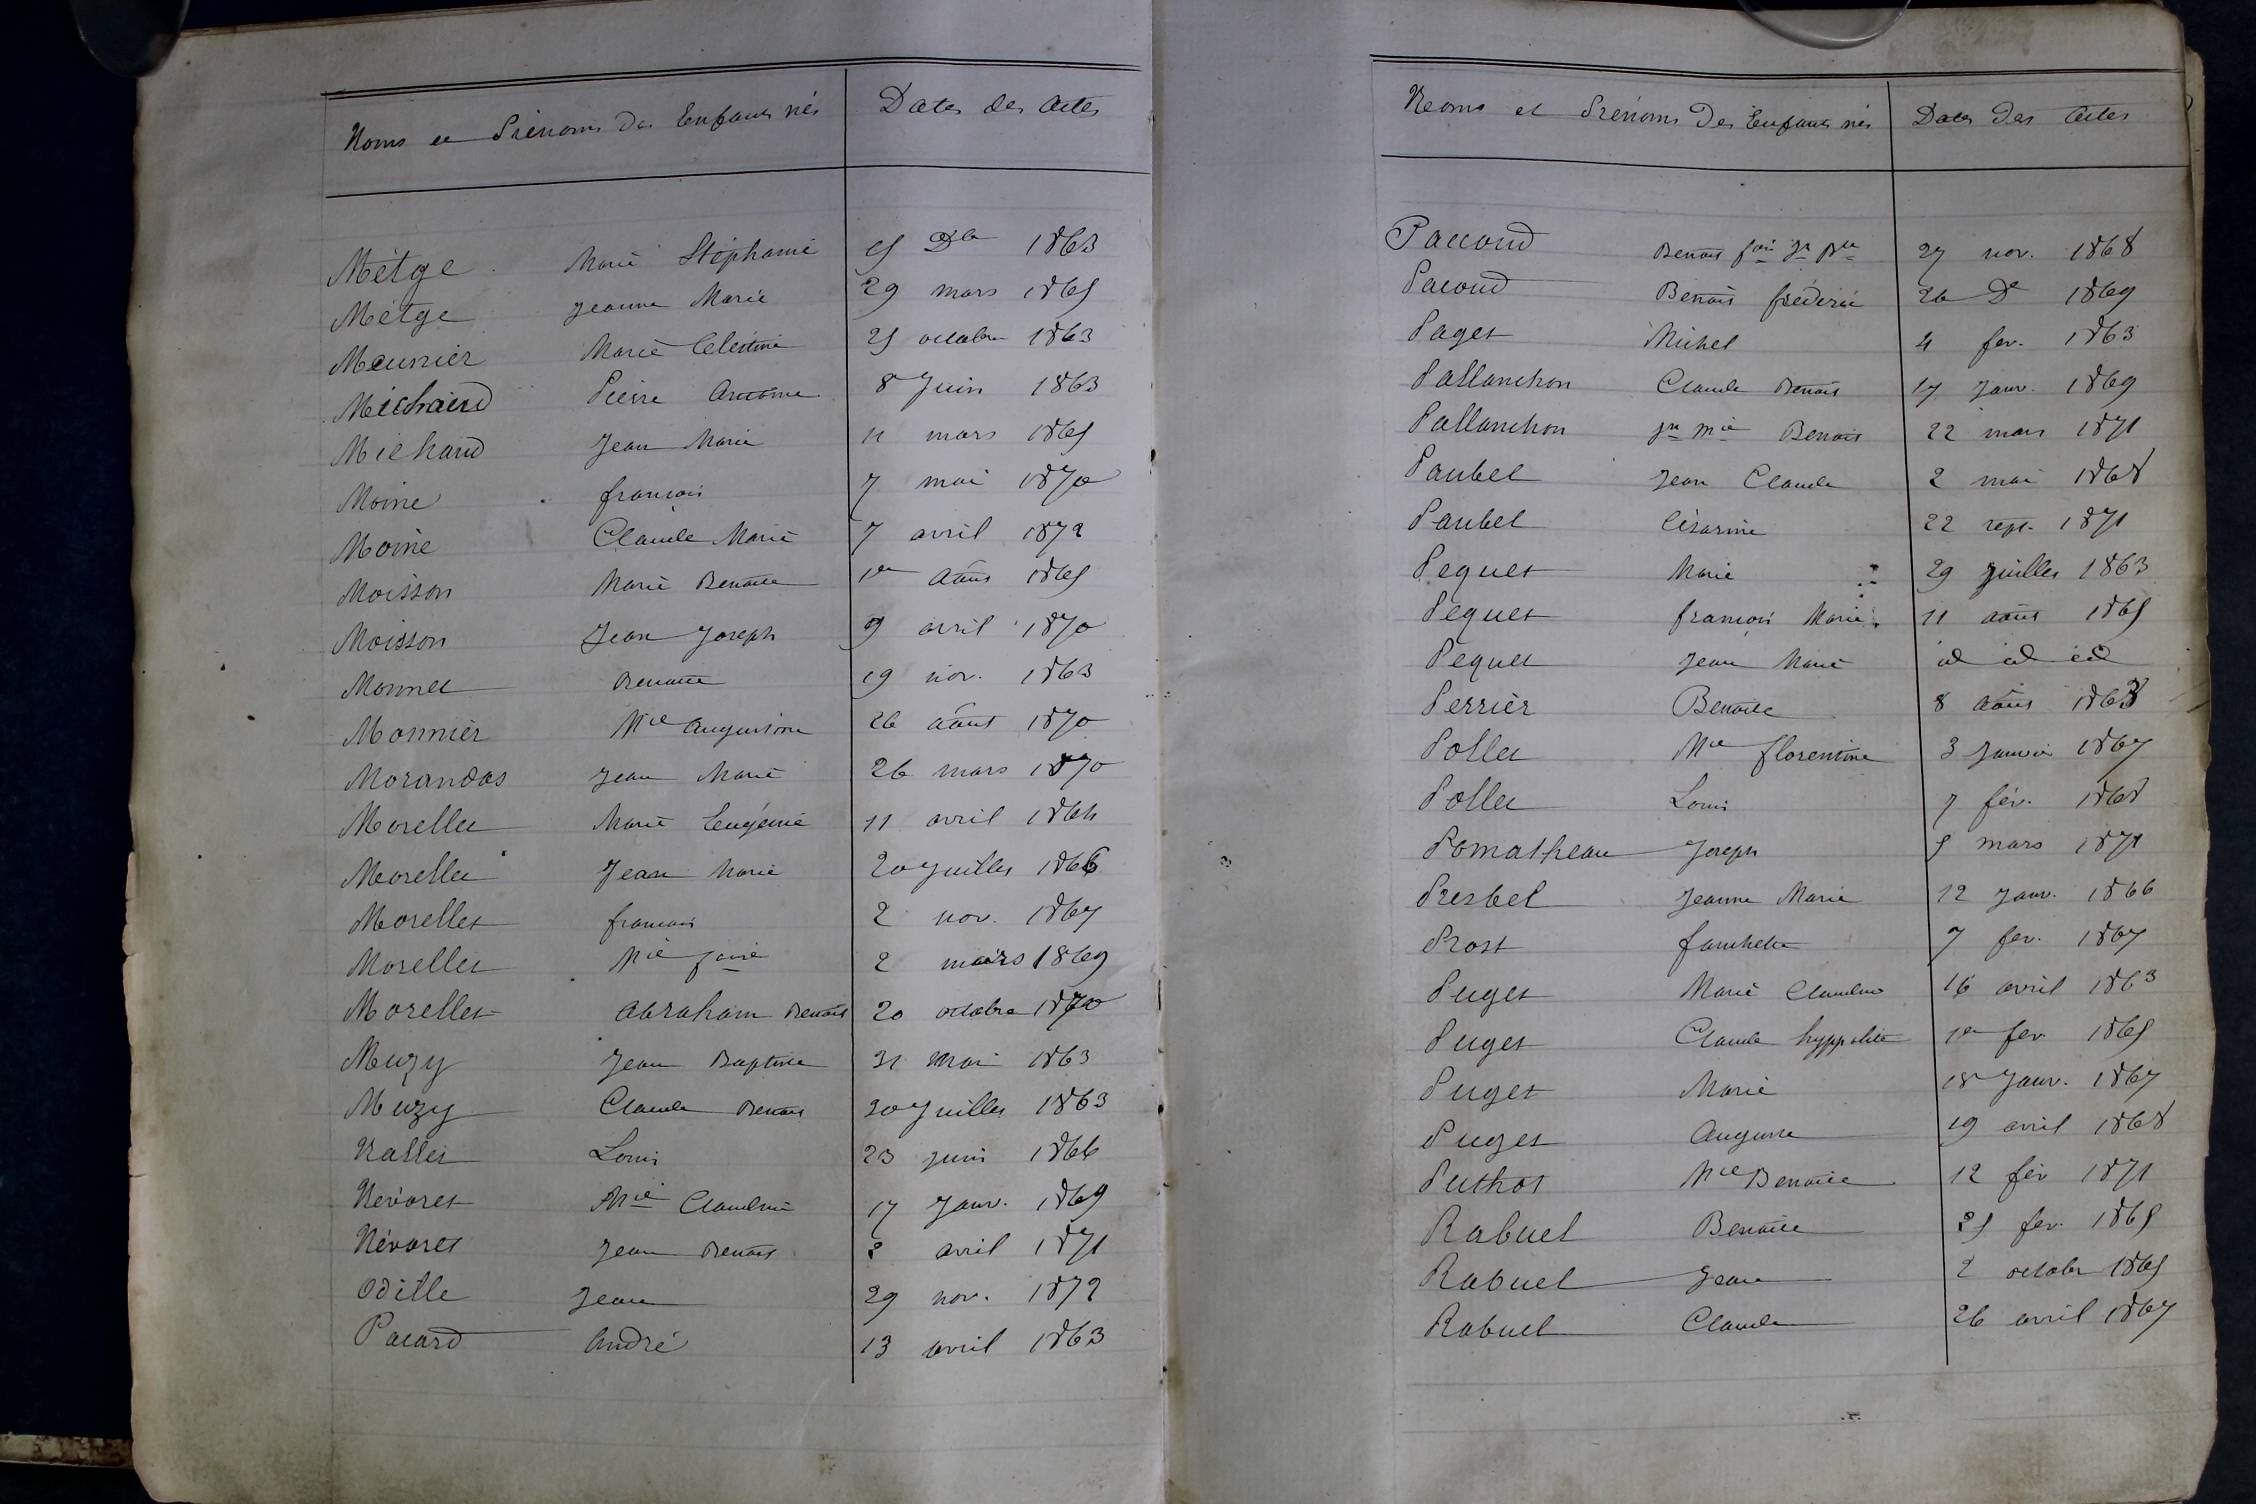 Noms et Prénoms des Enfants nés Dates des Actes
Métge Marie Stéphanie 15 Dbre 1863
Métge Jeanne Marie 29 mars 1865
Meunier Marie Célestine 25 octobre 1863
Michaud Pierre Antoine 8 Juin 1863
Michaud Jean Marie 11 mars 1865
Moine francois 7 mai 1870
Moine Claude Marie 7 avril 1872
Moisson Marie Benoite 1er Août 1865
Moisson Jean Joseph 9 avril 1870
Monnet Benoite 19 nov. 1863
Monnier Mie Augustine 26 août 1870
Morandas Jean Marie 26 mars 1870
Morellet Marie Eugénie 11 avril 1864
Morellet Jean Marie 20 Juillet 1866
Morellet francois 2 nov. 1867
Morellet Mie 2 mars 1869
Morellet Abraham Benoit 20 octobre 1870
Muzy Jean Baptiste 31 Mai 1863
Muzy Claude Benoit 30 Juillet 1863
Nallet Louis 23 Juin 1866
Névoret Mie Claudine 17 Janv. 1869
Névoret Jean Benoit 2 avril 1871
Odille Jean 29 nov. 1872
Pacard André 13 avril 1863
Noms et Prénoms des Enfants nés Dates des Actes
Paccoud Benoit 27 nov. 1868
Pacoud Benoit frédéric 26 De 1869
Paget Michel 4 fev. 1863
Pallanchon Claude Benoit 17 Janv. 1869
Pallanchon Jn Mie Benoit 22 mars 1871
Paubel Jean Claude 2 mai 1868
Paubel Césarine 22 sept. 1871
Pequet Marie 29 Juillet 1863
Pequet francois Marie 11 août 1865
Pequet Jean Marie id id id
Perrier Benoite 8 août 1863
Pollet Mie florentine 3 Janvier 1867
Pollet Louis 7 fév. 1868
Pomatheau Joseph 5 mars 1871
Presbel Jeanne Marie 12 Janv. 1866
Prost fanchette 7 fev. 1867
Puget Marie Claudine 16 avril 1863
Puget Claude hyppolite 1er fev 1865
Puget Marie 18 Janv. 1867
Puget Auguste 19 avril 1868
Puthot Mie Benoite 12 fév 1871
Rabuel Benoite 25 fev. 1865
Rabuel Jean 2 octobr 1865
Rabuel Claude 26 avril 1867